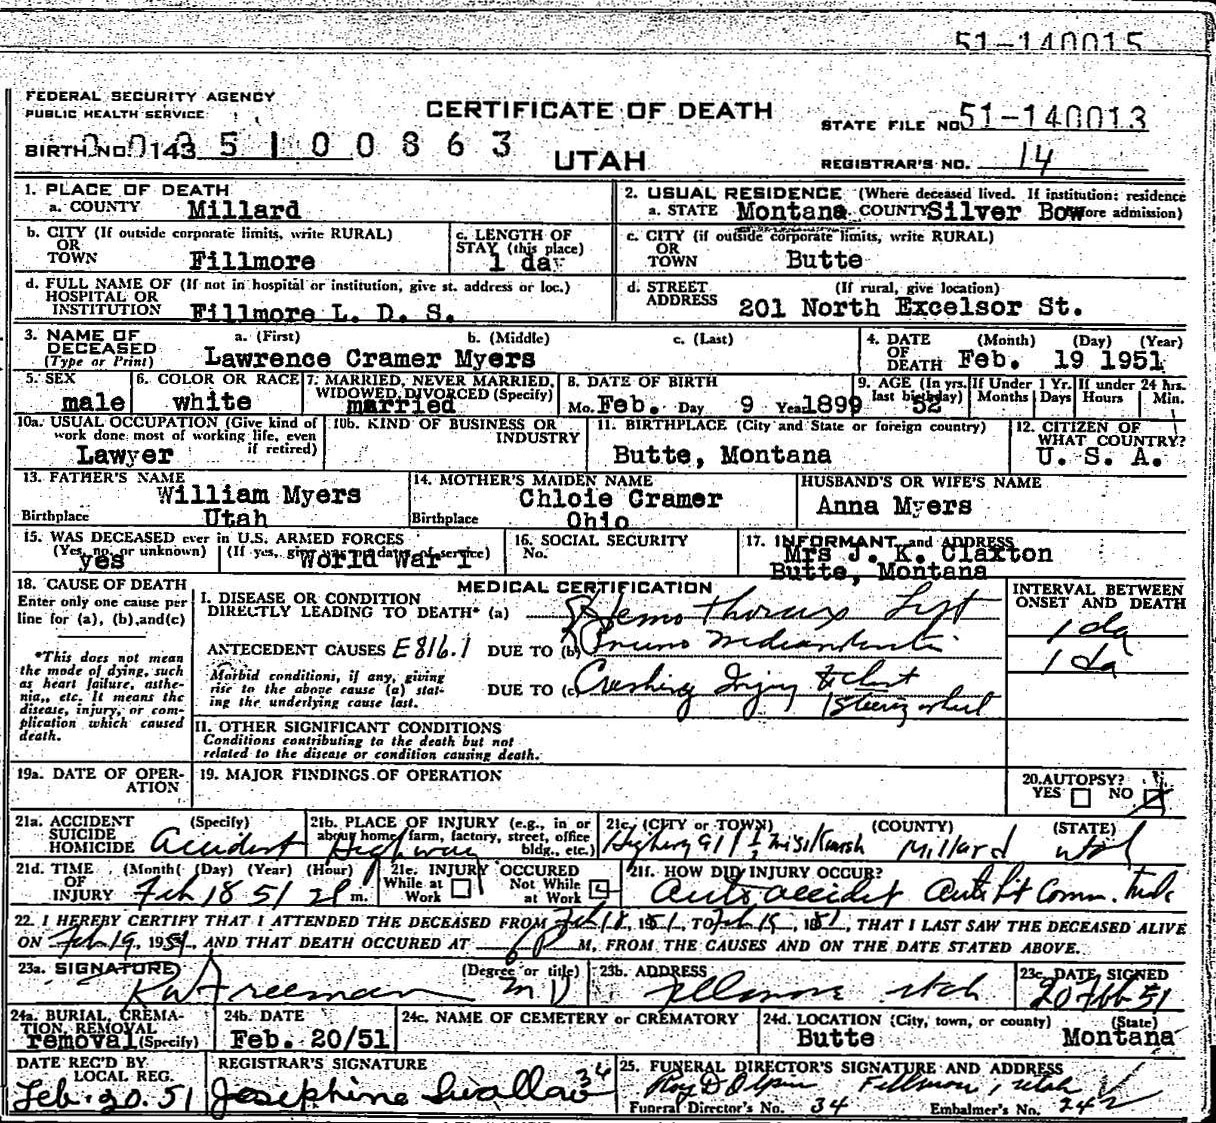 51-140015
FEDERAL SECURITY AGENCY
PUBLIC HEALTH SERVICE
CERTIFICATE OF DEATH
STATE FILE NO. 51-140013
BIRTH NO. 0143 5 1 0 0 8 6 3
UTAH
REGISTRAR'S NO. 14
1. PLACE OF DEATH
a. COUNTY Millard
2. USUAL RESIDENCE (Where deceased lived. If institution: residence
a. STATE Montana COUNTY Silver Bow ore admission)
b. CITY (If outside corporate limits, write RURAL)
OR
TOWN Fillmore
c. LENGTH OF
STAY (this place)
1 day
c. CITY (if outside corporate limits, write RURAL)
OR
TOWN Butte
d. FULL NAME OF (If not in hospital or institution, give st. address or loc.)
HOSPITAL OR
INSTITUTION Fillmore L. D. S.
d. STREET (If rural, give location)
ADDRESS 201 North Excelsor St.
3. NAME OF DECEASED
(Type or Print)
a. (First) b. (Middle) c. (Last)
Lawrence Cramer Myers
4. DATE OF DEATH (Month) (Day) (Year)
Feb. 19 1951
5. SEX
male
6. COLOR OR RACE
white
7. MARRIED, NEVER MARRIED,
WIDOWED, DIVORCED (Specify)
married
8. DATE OF BIRTH
Mo. Feb. Day 9 Year 1899
9. AGE (In yrs. last birthday) 52
If Under 1 Yr. Months Days
If under 24 hrs. Hours Min.
10a. USUAL OCCUPATION (Give kind of
work done most of working life, even
if retired)
Lawyer
10b. KIND OF BUSINESS OR
INDUSTRY
11. BIRTHPLACE (City and State or foreign country)
Butte, Montana
12. CITIZEN OF
WHAT COUNTRY?
U. S. A.
13. FATHER'S NAME
William Myers
Birthplace Utah
14. MOTHER'S MAIDEN NAME
Chloie Cramer
Birthplace Ohio
HUSBAND'S OR WIFE'S NAME
Anna Myers
15. WAS DECEASED ever in U.S. ARMED FORCES
(Yes, no, or unknown) (If yes, give war or dates of service)
yes World War I
16. SOCIAL SECURITY
No.
17. INFORMANT and ADDRESS
Mrs J. K. Claxton
Butte, Montana
18. CAUSE OF DEATH
Enter only one cause per
line for (a), (b), and (c)
*This does not mean
the mode of dying, such
as heart failure, asthe-
nia, etc. It means the
disease, injury, or com-
plication which caused
death.
MEDICAL CERTIFICATION
I. DISEASE OR CONDITION
DIRECTLY LEADING TO DEATH* (a) Hemo thorax Left
ANTECEDENT CAUSES E816.1 DUE TO (b)
Morbid conditions, if any, giving
rise to the above cause (a) stat-
ing the underlying cause last.
DUE TO (c) Crushing Injury chest
Steering wheel
INTERVAL BETWEEN
ONSET AND DEATH
1 da
1 da
II. OTHER SIGNIFICANT CONDITIONS
Conditions contributing to the death but not
related to the disease or condition causing death.
19a. DATE OF OPER-
ATION
19. MAJOR FINDINGS OF OPERATION
20. AUTOPSY?
YES NO
21a. ACCIDENT
SUICIDE
HOMICIDE
(Specify)
Accident
21b. PLACE OF INJURY (e.g., in or
about home, farm, factory, street, office
bldg., etc.)
Highway
21c. (CITY or TOWN) (COUNTY) (STATE)
Highway 91 Millard Utah
21d. TIME OF INJURY (Month) (Day) (Year) (Hour)
Feb 18 51 m.
21e. INJURY OCCURED
While at Work Not While at Work
21f. HOW DID INJURY OCCUR?
Auto accident Auto hit Comm. Truck
22. I HEREBY CERTIFY THAT I ATTENDED THE DECEASED FROM Feb 18, 1951, TO Feb 19, 1951, THAT I LAST SAW THE DECEASED ALIVE
ON Feb 19, 1951, AND THAT DEATH OCCURED AT 6 P M, FROM THE CAUSES AND ON THE DATE STATED ABOVE.
23a. SIGNATURE (Degree or title)
Freeman M D
23b. ADDRESS
Fillmore Utah
23c. DATE SIGNED
20 Feb 51
24a. BURIAL, CREMA-
TION, REMOVAL
removal (Specify)
24b. DATE
Feb. 20/51
24c. NAME OF CEMETERY or CREMATORY
24d. LOCATION (City, town, or county) (State)
Butte Montana
DATE REC'D BY
LOCAL REG.
Feb. 20. 51
REGISTRAR'S SIGNATURE 34
Josephine Swallow
25. FUNERAL DIRECTOR'S SIGNATURE AND ADDRESS
Roy D Olpin Fillmore, Utah
Funeral Director's No. 34 Embalmer's No. 242